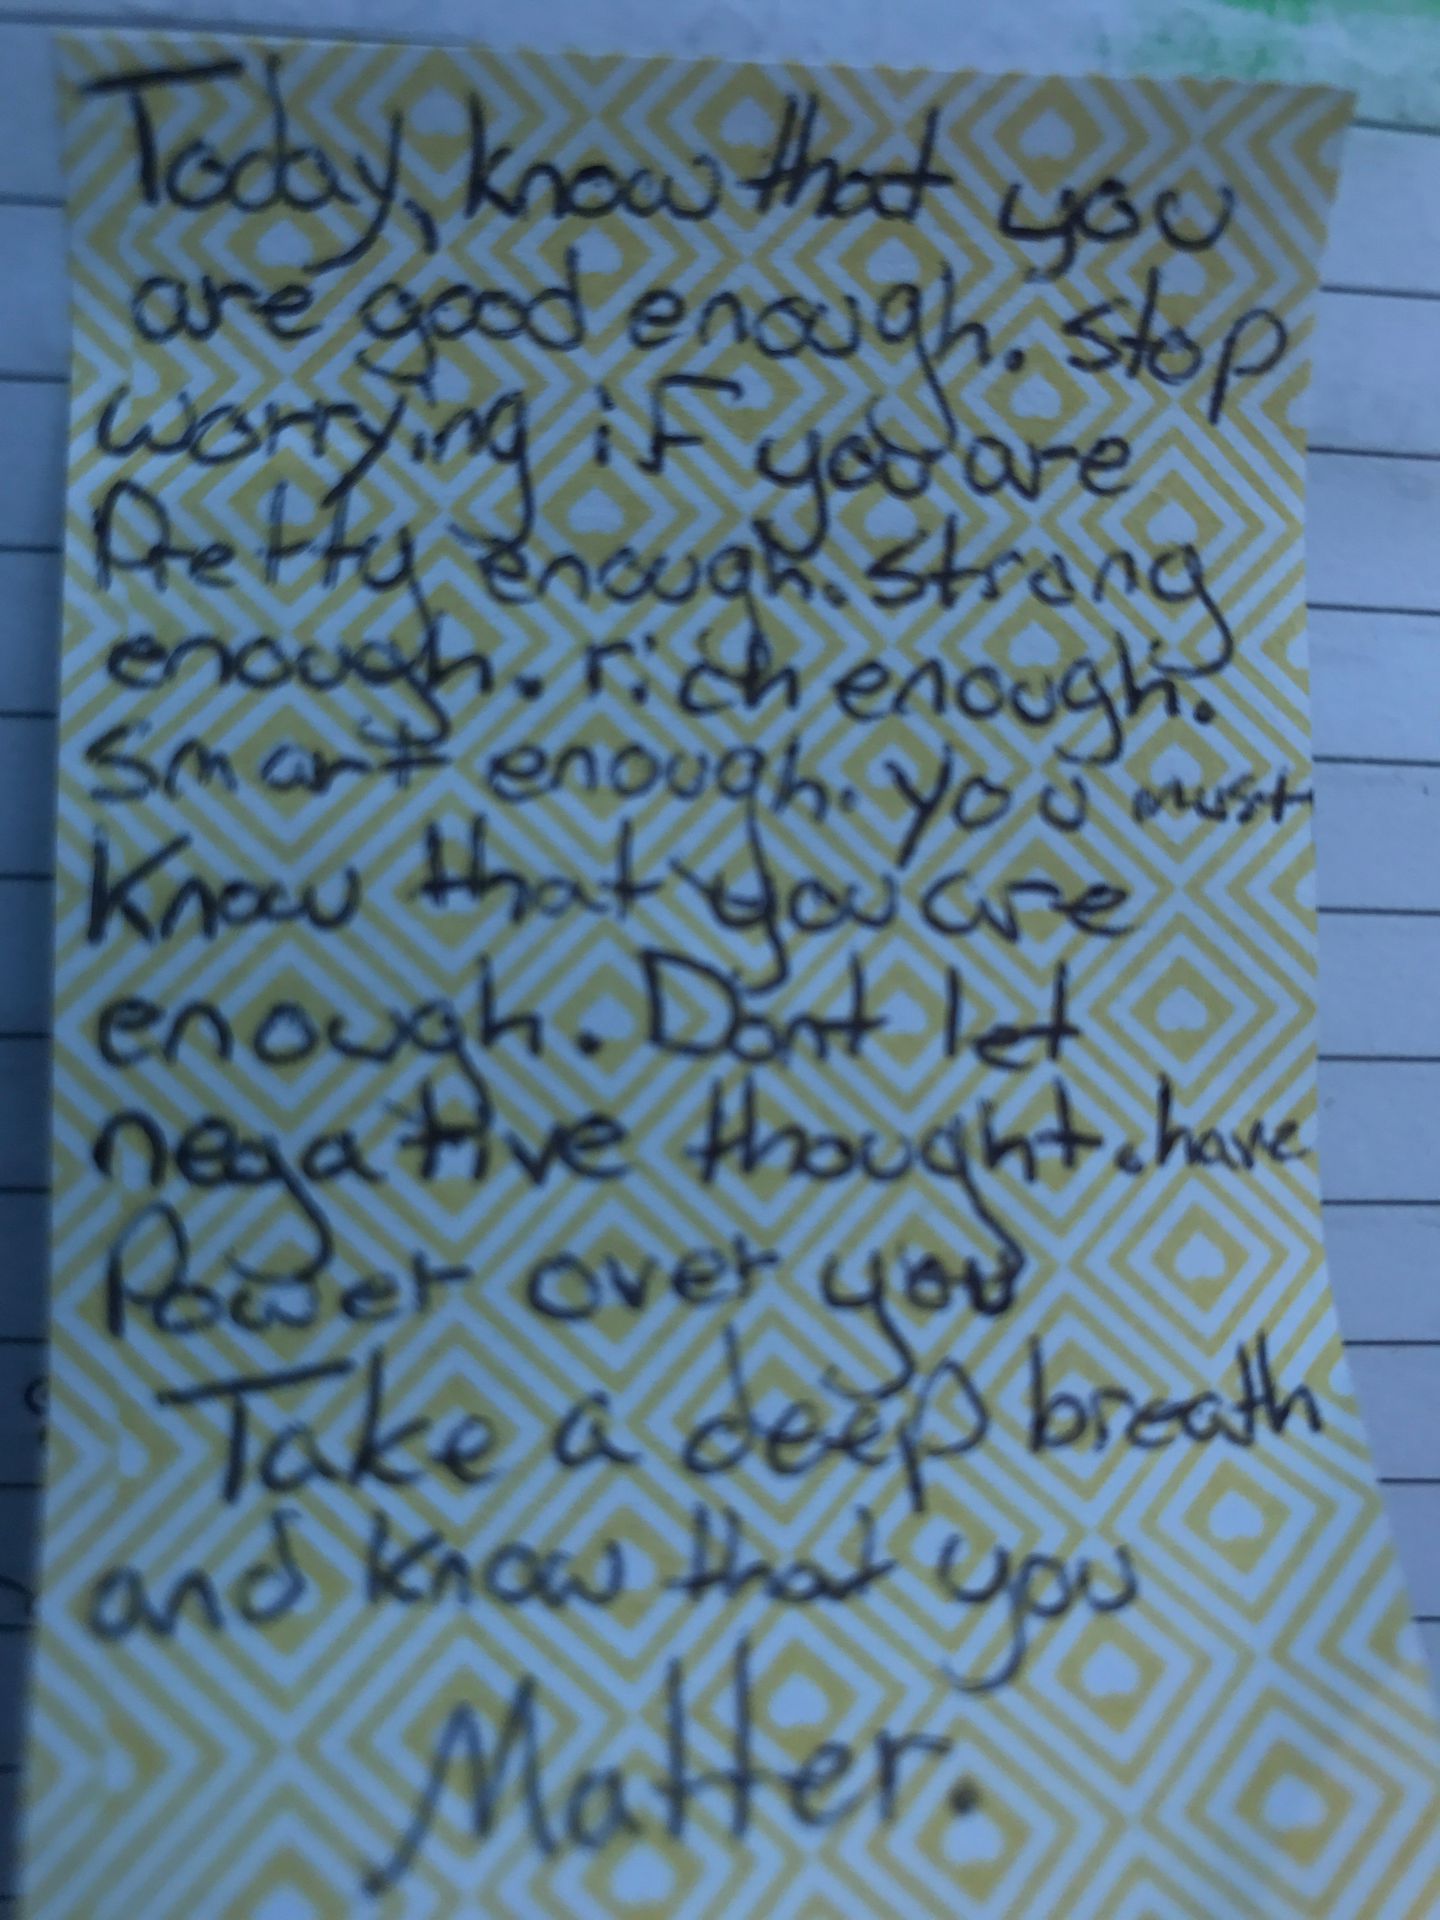 Today, know that you
are good enough. Stop
worrying if you are
Pretty enough. strong
enough. rich enough.
Smart enough. you must
know that you are
enough. Dont let
negative thought. have
Power over you
Take a deep breath
and know that you
Matter.